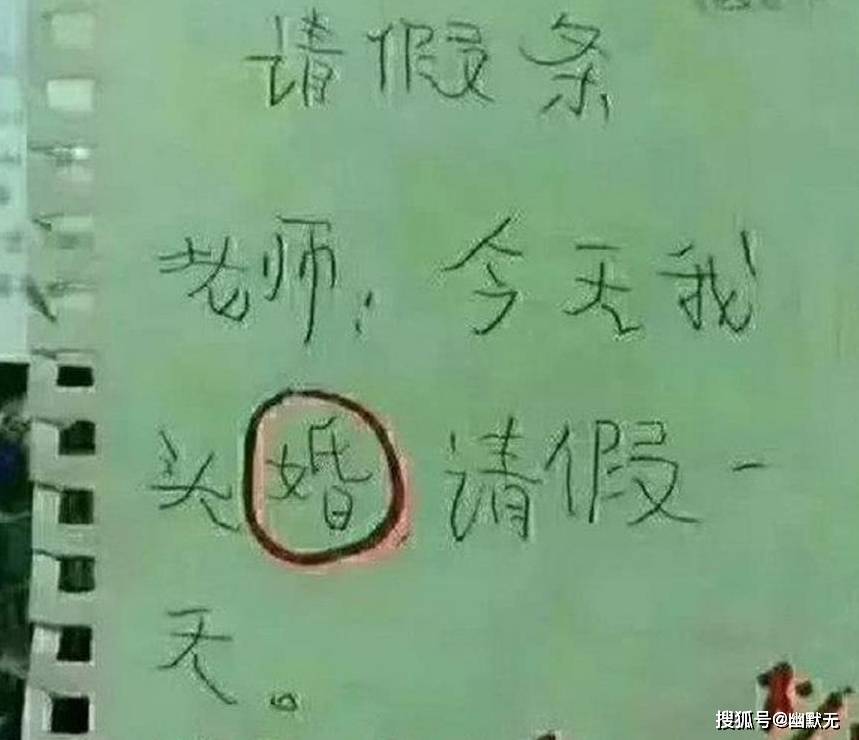 请假条
老师：今天我
头婚，请假一
天。
搜狐号@幽默无